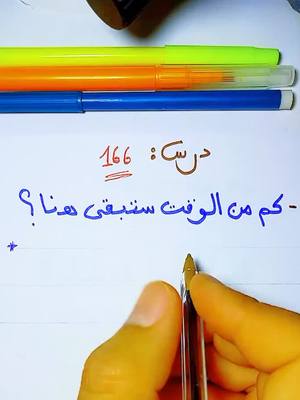 درس: 166
- كم من الوقت ستبقى هنا؟
*